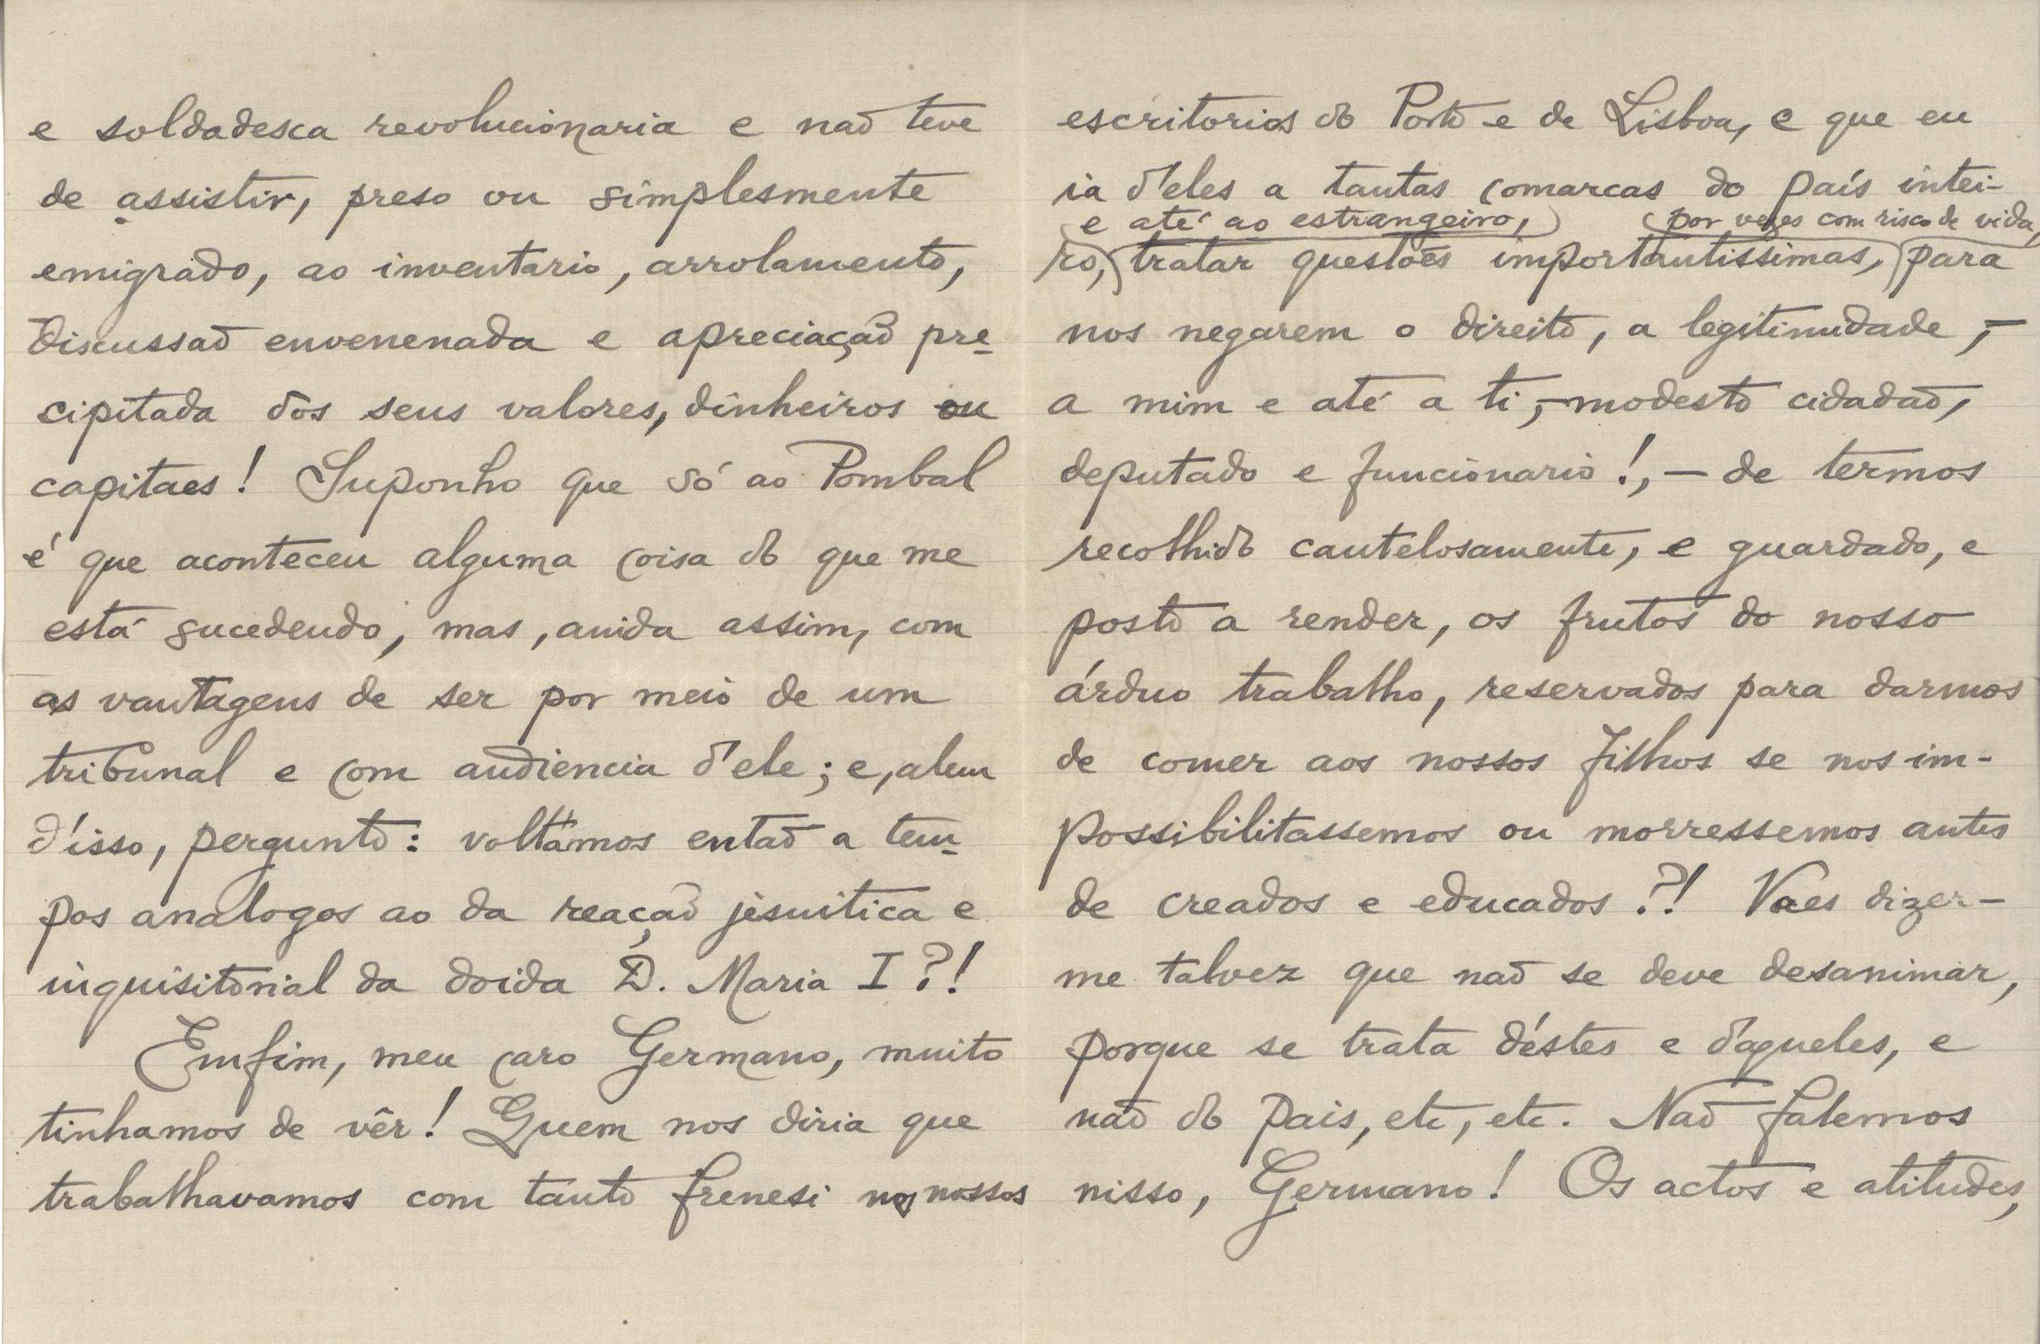 e soldadesca revolucionaria e não teve
de assistir, preso ou simplesmente
emigrado, ao inventario, arrolamento,
discussão envenenada e apreciação pre-
cipitada dos seus valores, dinheiros ou
capitaes! Suponho que só ao Pombal
é que aconteceu alguma coisa do que me
está sucedendo, mas, ainda assim, com
as vantagens de ser por meio de um
tribunal e com audiencia d'ele; e, alem
d'isso, pergunto: voltámos então a tem-
pos analogos ao da reação jesuitica e
inquisitorial da doida D. Maria I?!
Emfim, meu caro Germano, muito
tinhamos de vêr! Quem nos diria que
trabalhavamos com tanto frenesi nos nossos
escritorios do Porto e de Lisboa, e que eu
ia d'eles a tantas comarcas do país intei-
e até ao estrangeiro, por vezes com risco de vida,
ro, tratar questões importantissimas, para
nos negarem o direito, a legitimidade, -
a mim e até a ti, - modesto cidadão,
deputado e funcionario!, - de termos
recolhido cautelosamente, e guardado, e
posto a render, os frutos do nosso
árduo trabalho, reservados para darmos
de comer aos nossos filhos se nos im-
possibilitassemos ou morressemos antes
de creados e educados?! Vaes dizer-
me talvez que não se deve desanimar,
porque se trata d'éstes e d'aqueles, e
não do país, etc, etc. Não falemos
nisso, Germano! Os actos e atitudes,